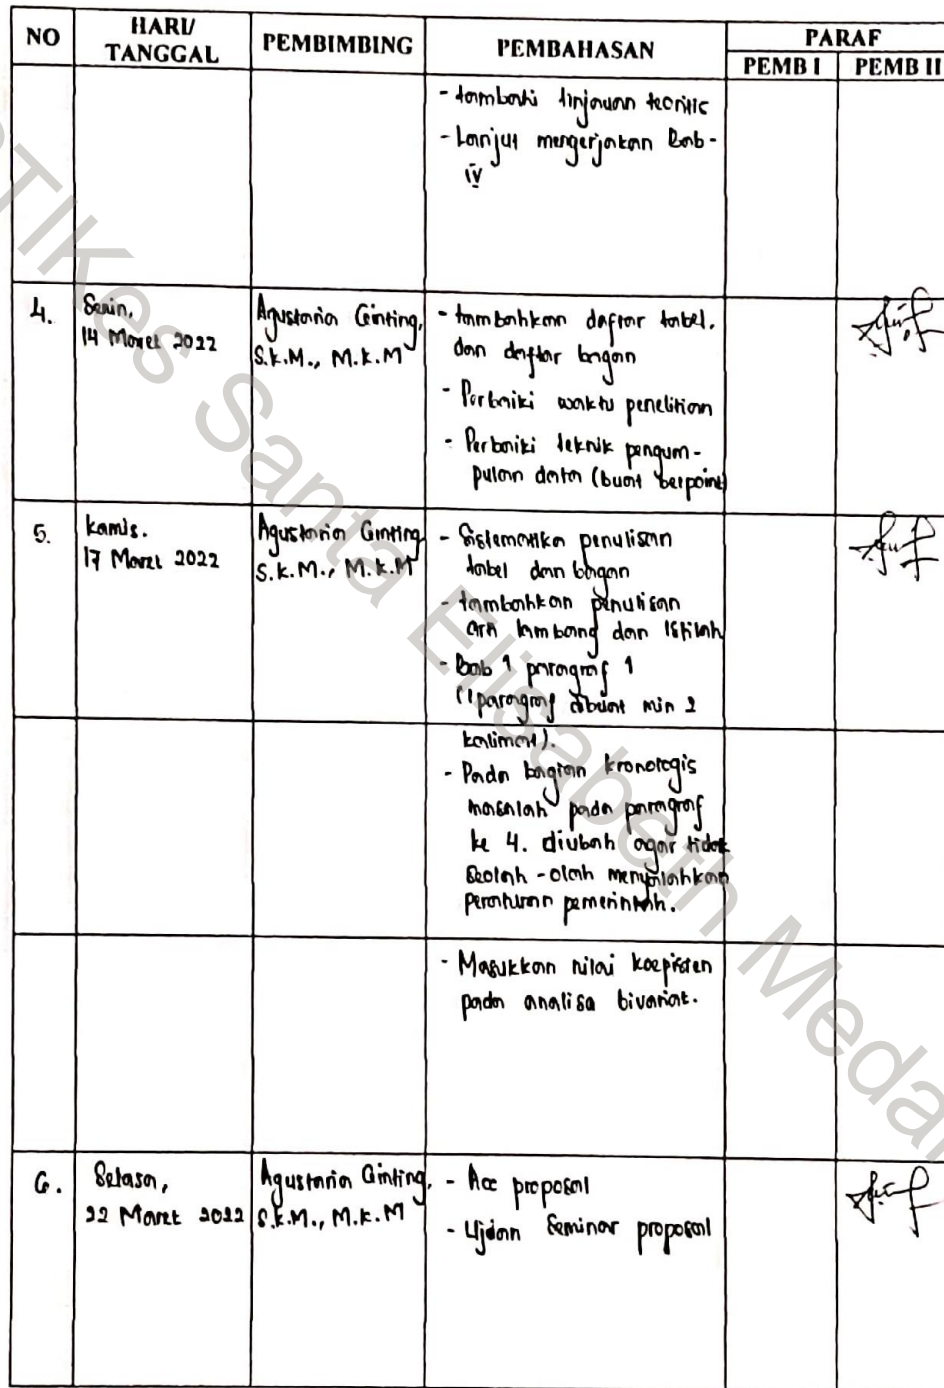 NO HARI/ TANGGAL PEMBIMBING PEMBAHASAN PARAF
PEMB I PEMB II
- tambahi tinjauan teoritis
- Lanjut mengerjakan Bab-
IV
4. Senin, 14 Maret 2022
Agustaria Ginting, S.K.M., M.K.M
- tambahkan daftar tabel.
dan daftar bagan
- Perbaiki waktu penelitian
- Perbaiki teknik pengum-
pulan data (buat berpoint)
5. Kamis. 17 Maret 2022
Agustaria Ginting S.K.M., M.K.M
- Sistematika penulisan
tabel dan bagan
- tambahkan penulisan
arti lambang dan istilah
- Bab 1 paragraf 1
(1 paragraf dibuat min 2
kalimat).
- Pada bagian kronologis
masalah pada paragraf
ke 4. diubah agar tidak
seolah-olah menyalahkan
peraturan pemerintah.
- Masukkan nilai koepisien
pada analisa bivariat.
6. Selasa, 22 Maret 2022
Agustaria Ginting, S.K.M., M.K.M
- Acc proposal
- Ujian Seminar proposal
STIKes Santa Elisabeth Medan